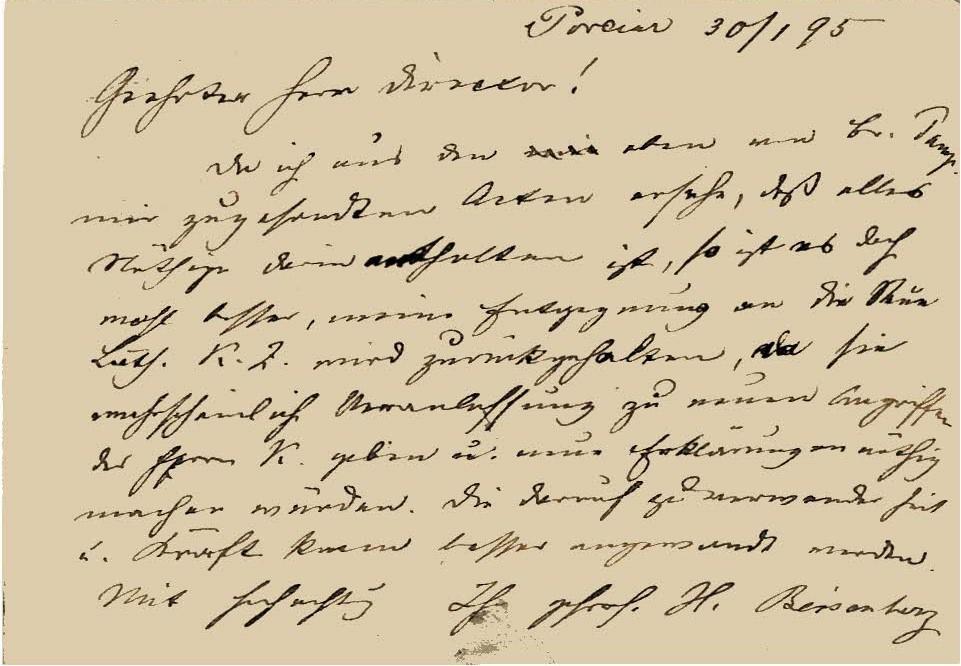 Poreiar 30/1 95
Geehrter Herr Director!
Da ich aus den eben von Br. Pamp.
mir zugesandten Acten ersehe, daß alles
Nöthige darin enthalten ist, so ist es doch
wohl besser, meine Entgegnung an die Neue
Luth. K. Z. wird zurückgehalten, da sie
wahrscheinlich Veranlassung zu neuen Angriffen
des Herrn K. geben u. neue Erklärungen nöthig
machen würden. Die darauf zu verwendende Zeit
u. Kraft kann besser angewandt werden.
Mit Hochachtg Ihr H. Beisenherz